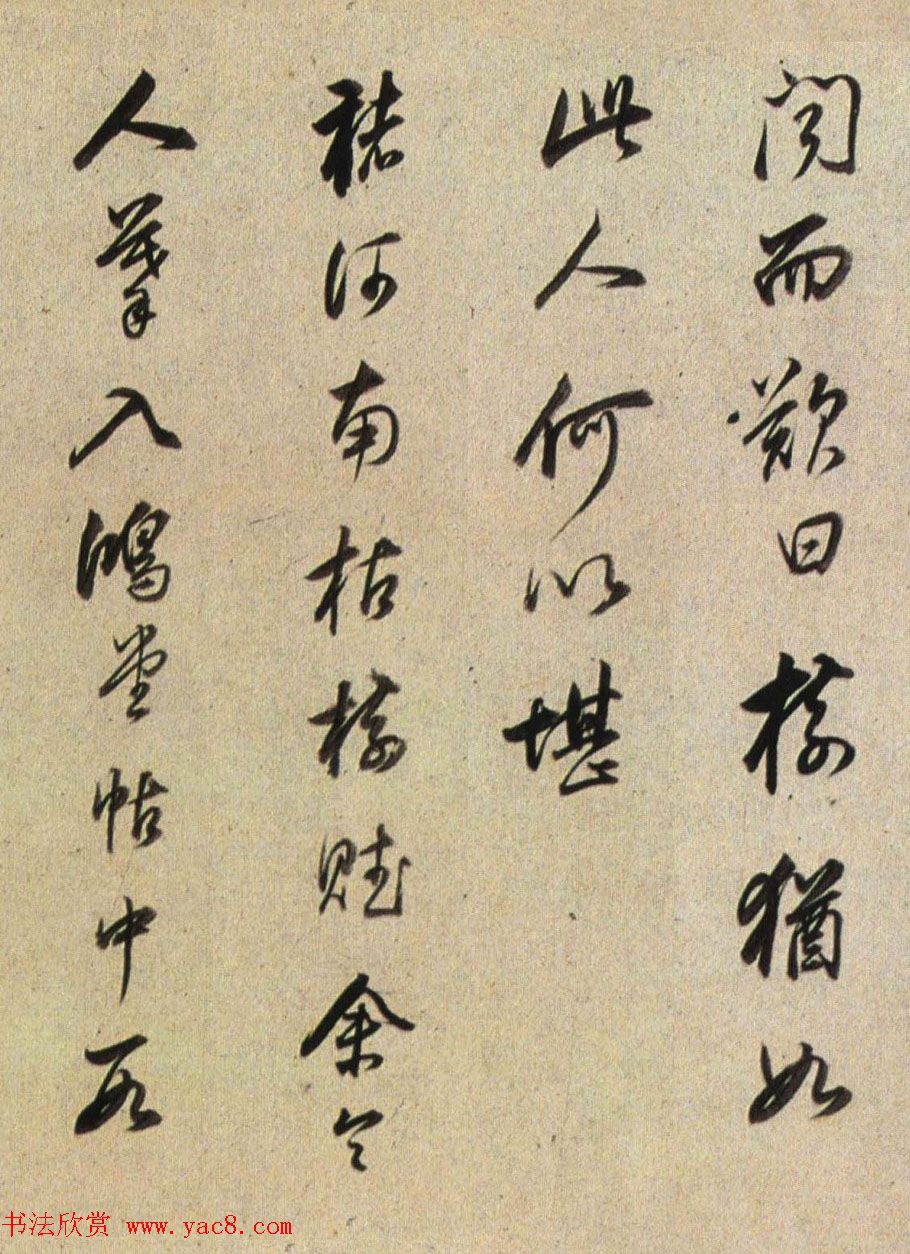 聞而歎曰樹猶如
此人何以堪
褚河南枯樹賦余令
人摹入鴻堂帖中
书法欣赏 www.yac8.com